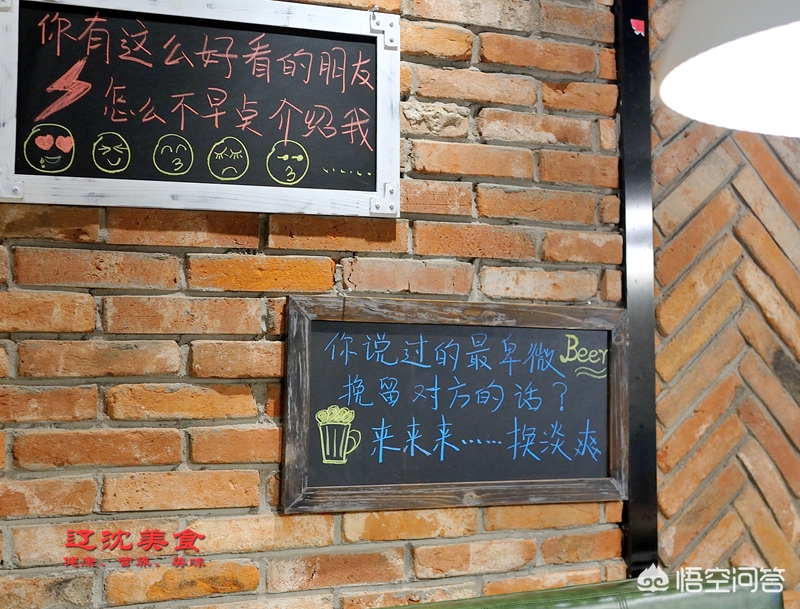 你有这么好看的朋友
怎么不早点介绍我
......
你说过的最卑微
Beer
挽留对方的话？
来来来……换淡爽
辽沈美食
健康、营养、美味
悟空问答